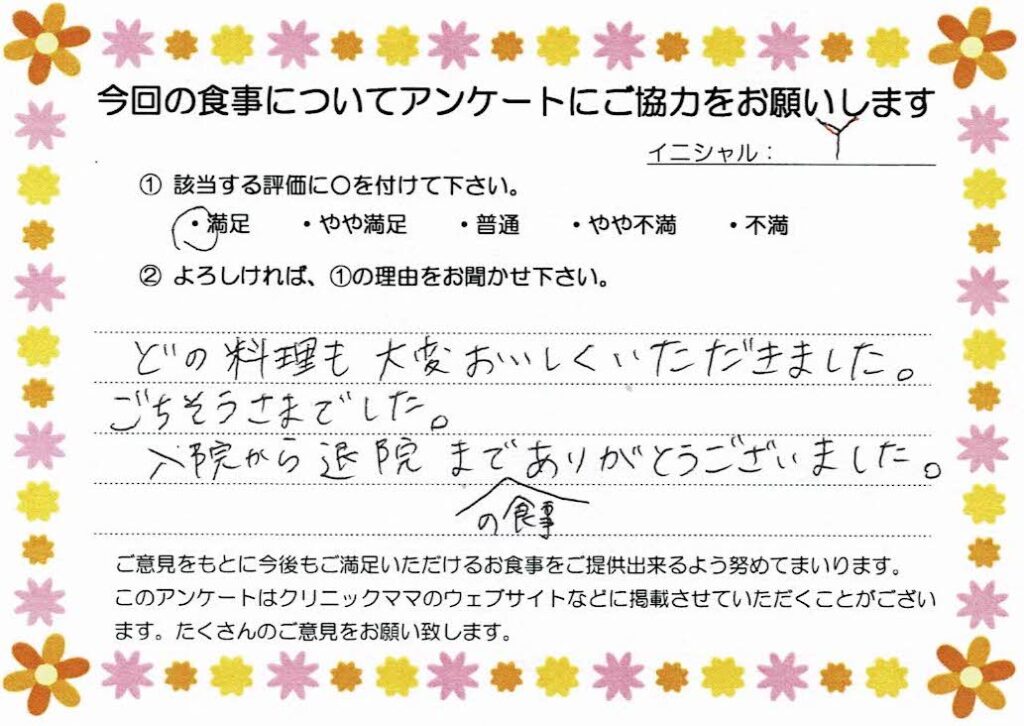 今回の食事についてアンケートにご協力をお願いします
イニシャル： Y
① 該当する評価に〇を付けて下さい。
・満足 ・やや満足 ・普通 ・やや不満 ・不満
② よろしければ、①の理由をお聞かせ下さい。
どの料理も大変おいしくいただきました。
ごちそうさまでした。
入院から退院までありがとうございました。
の食事
ご意見をもとに今後もご満足いただけるお食事をご提供出来るよう努めてまいります。
このアンケートはクリニックママのウェブサイトなどに掲載させていただくことがござい
ます。たくさんのご意見をお願い致します。